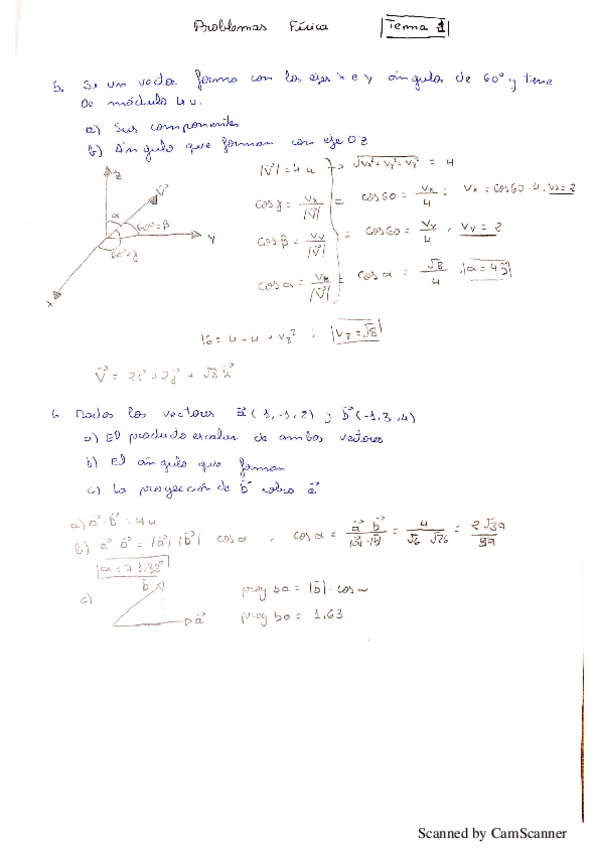 Problemas Física Tema 1
5. Si un vector forma con los ejes x e y ángulos de 60° y tiene
de módulo 4u.
a) Sus componentes
b) Ángulo que forman con eje OZ
|V⃗| = 4u → √(Vx² + Vy² + Vz²) = 4
cos γ = Vx/|V⃗| = cos 60 = Vx/4 ; Vx = cos 60 · 4 ; Vx = 2
cos β = Vy/|V⃗| = cos 60 = Vy/4 , Vy = 2
cos α = Vz/|V⃗| = cos α = √8/4
z
V⃗
α
60° = β
y
60° = γ
x
16 = 4 + 4 + Vz² ; Vz = √8
V⃗ = 2i⃗ + 2j⃗ + √8 k⃗
6. Dados los vectores a⃗ (1, -1, 2) y b⃗ (-1, 3, 4)
a) El producto escalar de ambos vectores
b) El ángulo que forman
c) La proyección de b⃗ sobre a⃗
a) a⃗ · b⃗ = 4u
b) a⃗ b⃗ = |a⃗| |b⃗| cos α , cos α = a⃗ b⃗ / |a⃗| · |b⃗| = 4 / √6 · √26 = 2√39 / 39
α = 71,32°
c) b⃗
a⃗
proy ba = |b⃗| · cos α
proy ba = 1,63
Scanned by CamScanner